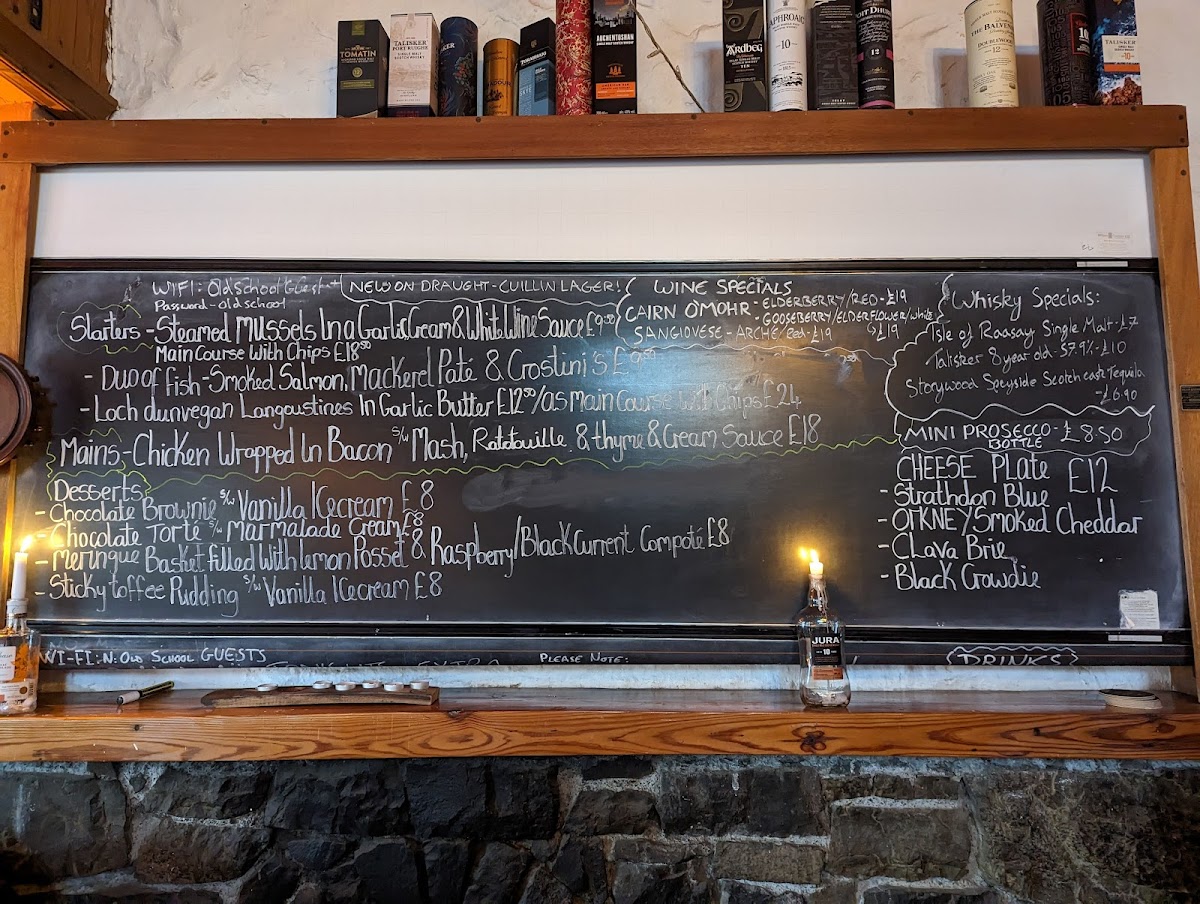 TOMATIN
TALISKER
PORT RUIGHE
SKYE
AUCHENTOSHAN
Ardbeg
TEN
LAPHROAIG
10
12
THE BALVENIE
DOUBLEWOOD
12
TALISKER
10
WIFI: Oldschool Guest
Password - oldschool
NEW ON DRAUGHT - CUILLIN LAGER!
Starters - Steamed Mussels In a Garlic, Cream & White Wine Sauce £9.50
Main Course With Chips £18.50
- Duo of fish - Smoked Salmon, Mackerel Paté & Crostini's £9.50
- Loch dunvegan Langoustines In Garlic Butter £12.50/as main course with Chips £24
Mains - Chicken Wrapped In Bacon s/w Mash, Ratatouille & thyme & Cream Sauce £18
Desserts
- Chocolate Brownie s/w Vanilla Icecream £8
- Chocolate Torte s/w Marmalade Cream £8
- Meringue Basket filled With Lemon Posset & Raspberry/Blackcurrent Compoté £8
- Sticky toffee Pudding s/w Vanilla Icecream £8
WINE SPECIALS
CAIRN O'MOHR - ELDERBERRY/RED - £19
- GOOSEBERRY/ELDERFLOWER/white £19
SANGIOVESE - ARCHÉ/Red - £19
Whisky Specials:
Isle of Raasay Single Malt - £7
Talisker 8 year old - 57.9% - £10
Storywood Speyside Scotch cask Tequila
- £6.90
MINI PROSECCO - £8.50
BOTTLE
CHEESE Plate £12
- Strathdon Blue
- Orkney Smoked Cheddar
- Clava Brie
- Black Crowdie
WI-FI: N: OLD SCHOOL GUESTS
PLEASE NOTE:
DRINKS
JURA
10